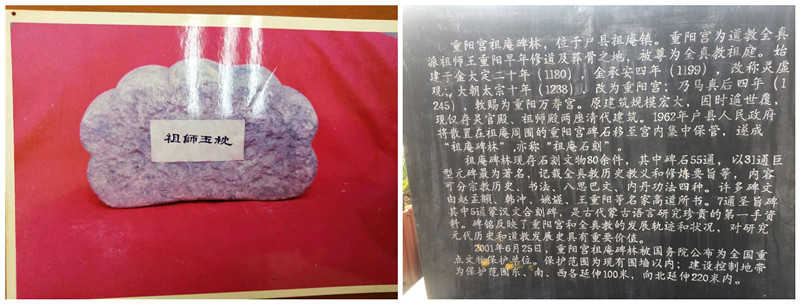 祖師玉枕
重阳宫祖庵碑林，位于户县祖庵镇。重阳宫为道教全真
派祖师王重阳早年修道及葬骨之地，被尊为全真教祖庭。始
建于金大定二十年（1180），金承安四年（1199），改称灵虚
观；大朝太宗十年（1238），改为重阳宫；乃马真后四年（1
245），敕赐为重阳万寿宫。原建筑规模宏大，因时逾世覆，
现仅存灵官殿、祖师殿两座清代建筑。1962年户县人民政府
将散置在祖庵周围的重阳宫碑石移至宫内集中保管，遂成
“祖庵碑林”，亦称“祖庵石刻”。
祖庵碑林现存石刻文物80余件，其中碑石55通，以31通巨
型元碑最为著名，记载全真教历史教义和修炼要旨等，内容
可分宗教历史、书法、八思巴文、内丹功法四种。许多碑文
由赵孟頫、韩冲、姚燧、王重阳等名家高道所书。7通圣旨碑
其中5通蒙汉文合刻碑，是古代蒙古语言研究珍贵的第一手资
料。碑铭反映了重阳宫和全真教的发展轨迹和状况，对研究
元代历史和道教发展史具有重要价值。
2001年6月25日，重阳宫祖庵碑林被国务院公布为全国重
点文物保护单位。保护范围为现有围墙以内；建设控制地带
为保护范围东、南、西各延伸100米，向北延伸220米内。